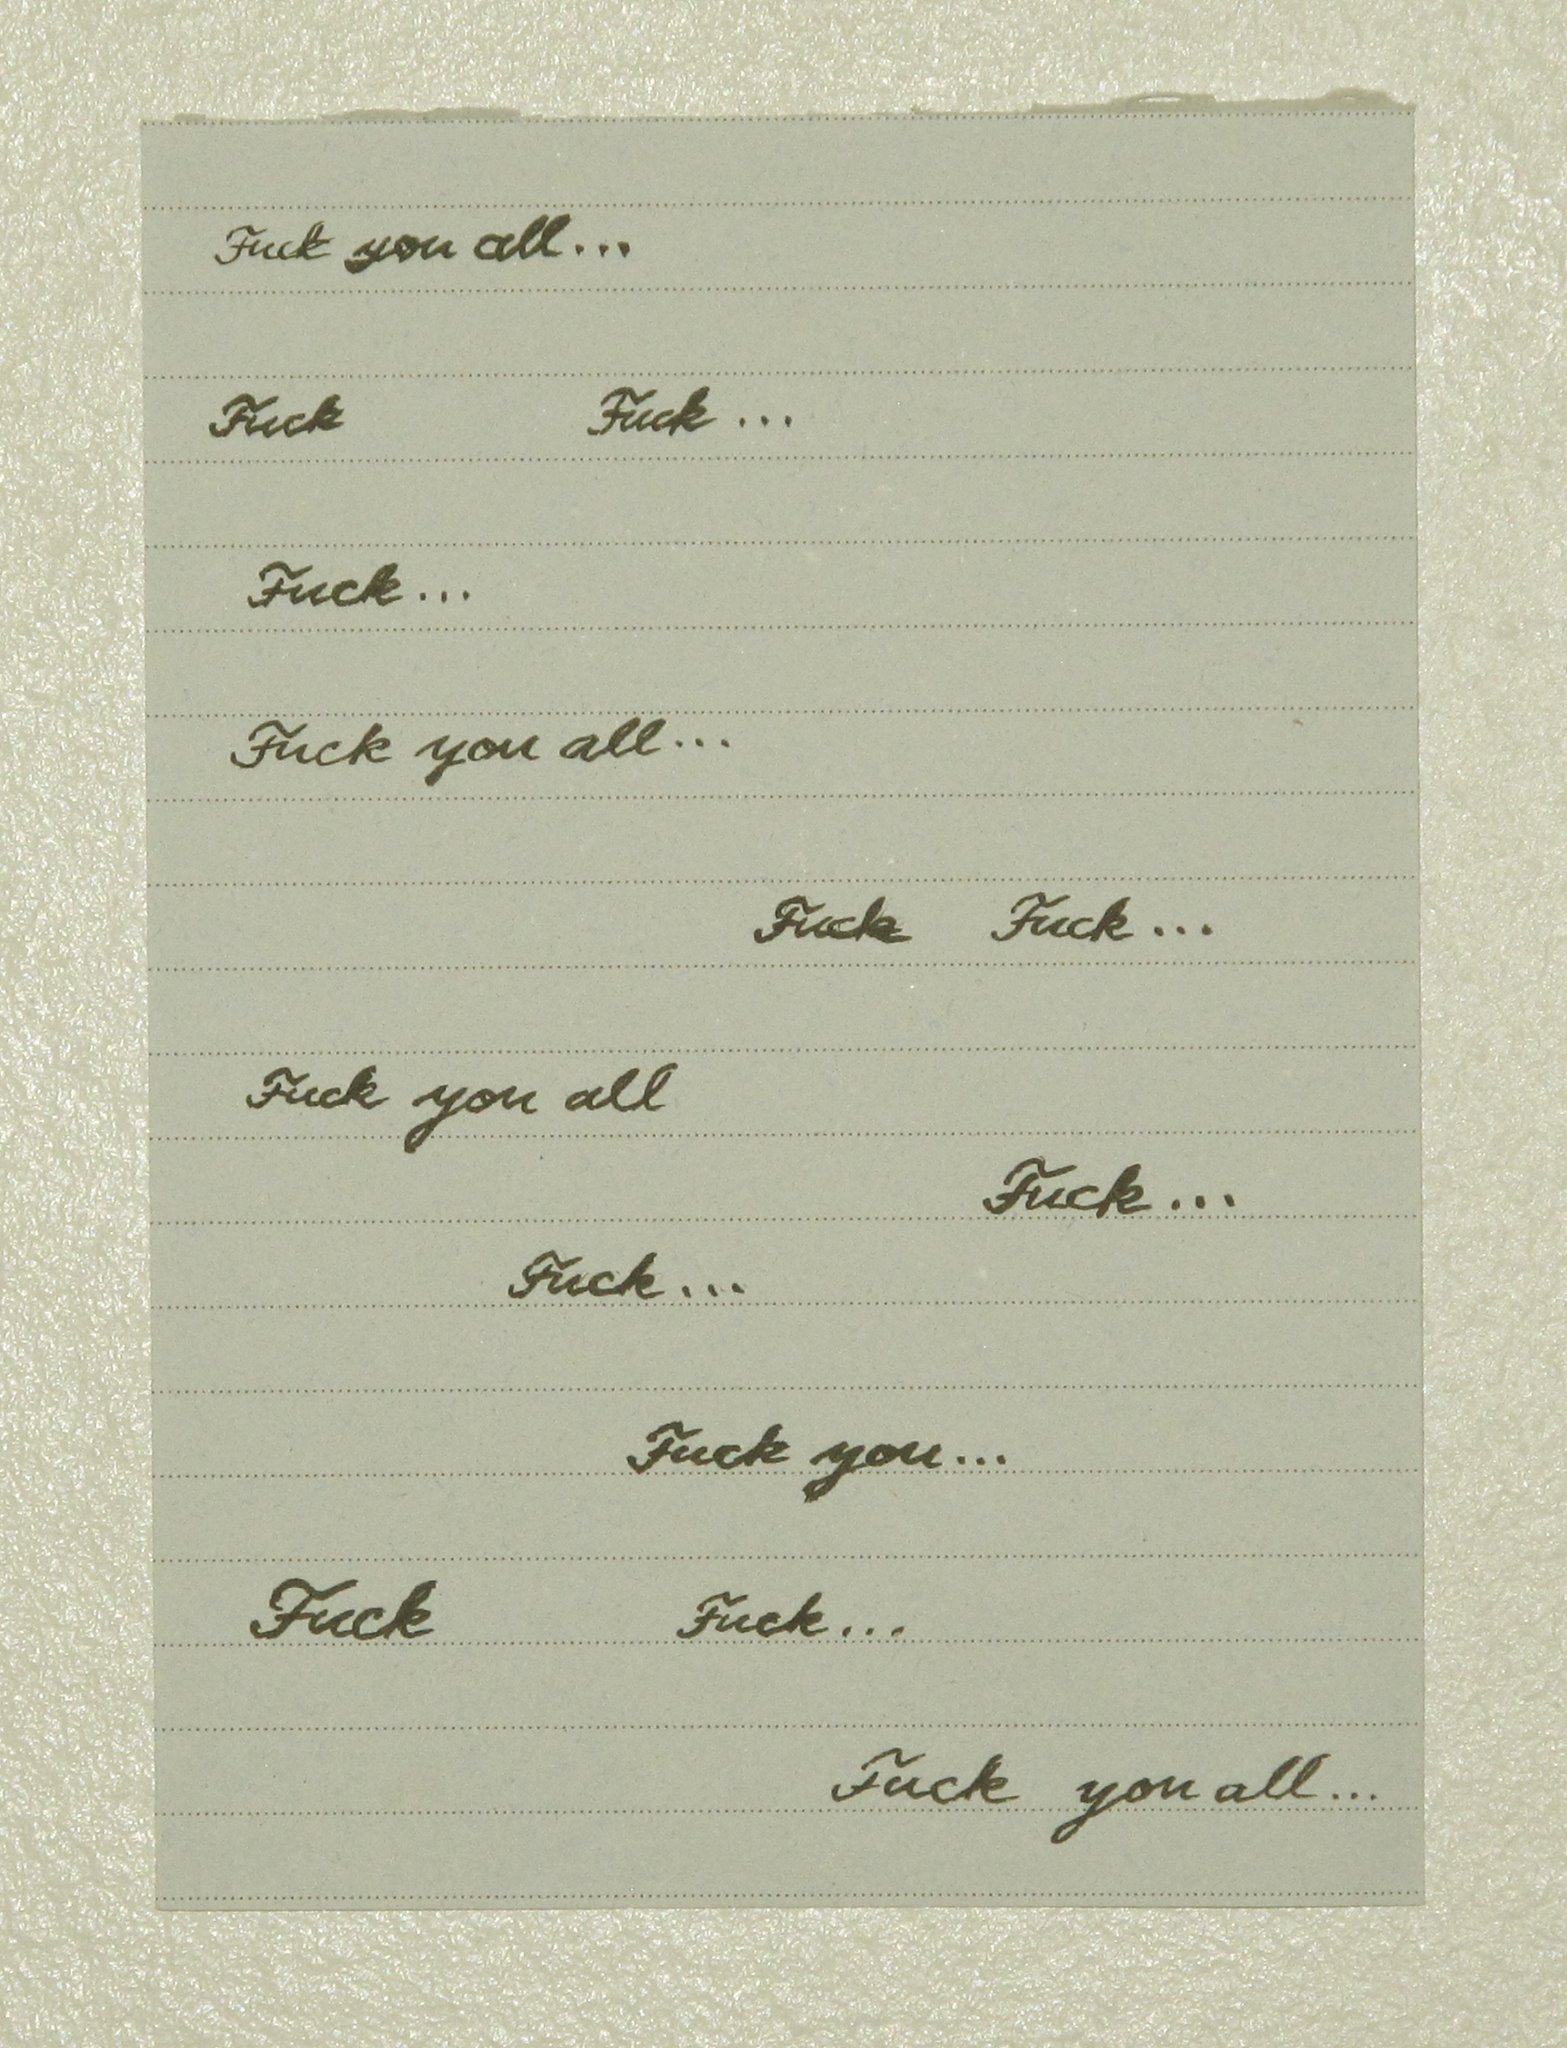 Fuck you all...
Fuck Fuck...
Fuck...
Fuck you all...
Fuck Fuck...
Fuck you all
Fuck...
Fuck...
Fuck you...
Fuck Fuck...
Fuck you all...